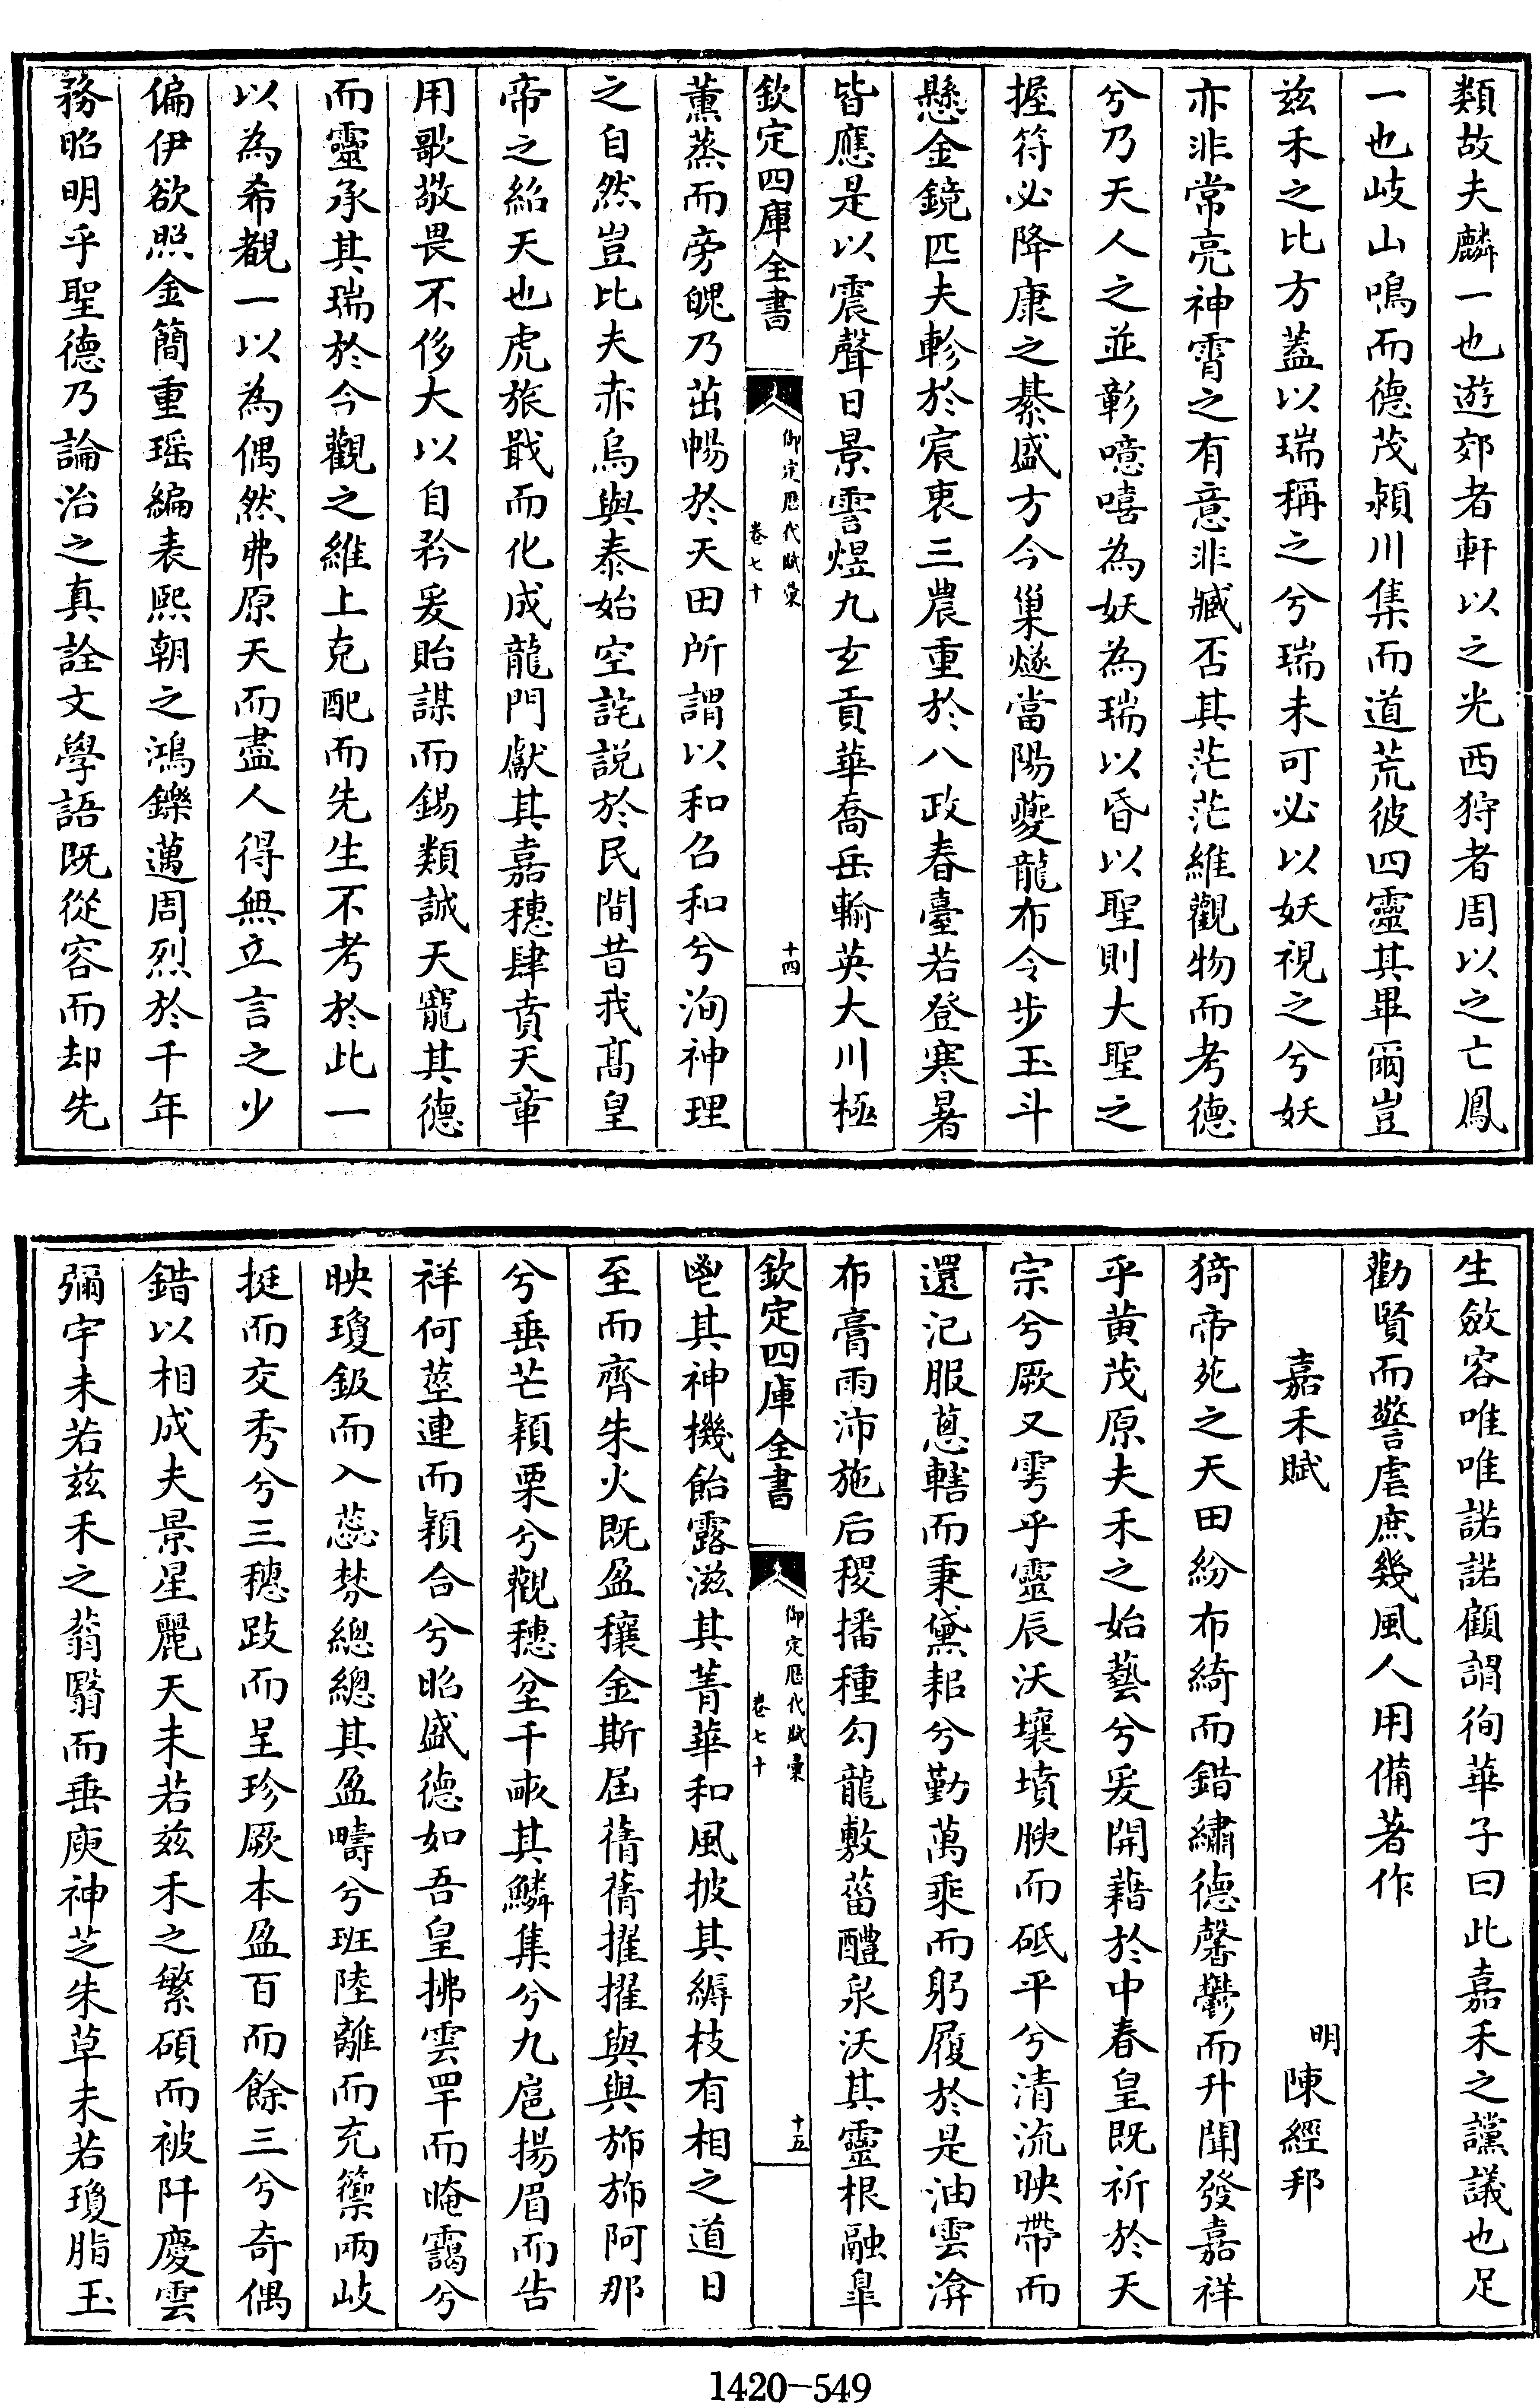 類故夫麟一也遊郊者軒以之光西狩者周以之亡鳳
一也岐山鳴而德茂潁川集而道荒彼四靈其畢爾豈
兹禾之比方蓋以瑞稱之兮瑞未可必以妖視之兮妖
亦非常亮神霄之有意非臧否其茫茫維觀物而考德
兮乃天人之並彰噫嘻為妖為瑞以昏以聖則大聖之
握符必降康之綦盛方今巢燧當陽夔龍布令步玉斗
懸金鏡匹夫軫於宸衷三農重於八政春臺若登寒暑
皆應是以震聲日景雲煜九玄貢華喬岳輸英大川極
欽定四庫全書
御定歷代賦彙
卷七十
十四
薰蒸而旁魄乃茁暢於天田所謂以和召和兮洵神理
之自然豈比夫赤烏與泰始空詫説於民間昔我髙皇
帝之紹天也虎旅戢而化成龍門獻其嘉穗肆賁天章
用歌敬畏不侈大以自矜爰貽謀而錫類誠天寵其德
而靈承其瑞於今觀之維上克配而先生不考於此一
以為希覯一以為偶然弗原天而盡人得無立言之少
偏伊欲照金簡重瑶編表熙朝之鴻鑠邁周烈於千年
務昭明乎聖德乃論治之真詮文學語既從容而却先
生斂容唯唯諾諾顧謂徇華子曰此嘉禾之讜議也足
勸賢而警虐庶幾風人用備著作
嘉禾賦
明陳經邦
猗帝苑之天田紛布綺而錯繡德馨鬱而升聞發嘉祥
乎黄茂原夫禾之始藝兮爰開藉於中春皇既祈於天
宗兮厥又雩乎靈辰沃壤墳腴而砥平兮清流映帶而
還汜服蔥轄而秉黛耜兮勤萬乘而躬履於是油雲渰
布膏雨沛施后稷播種勾龍敷菑醴泉沃其靈根融皐
鬯其神機飴露滋其菁華和風披其縟枝有相之道日
至而齊朱火既盈穰金斯屆蒨蒨擢擢與與斾斾阿那
兮垂芒穎栗兮觀穗坌千畞其鱗集兮九扈揚眉而告
祥何莖連而穎合兮昭盛德如吾皇拂雲罕而晻靄兮
映瓊鈒而入蕊棼總總其盈疇兮班陸離而充籞兩岐
挺而交秀兮三穗跂而呈珍厥本盈百而餘三兮奇偶
錯以相成夫景星麗天未若兹禾之繁碩而被阡慶雲
彌宇未若兹禾之蓊翳而垂庾神芝朱草未若瓊脂玉
1420-549